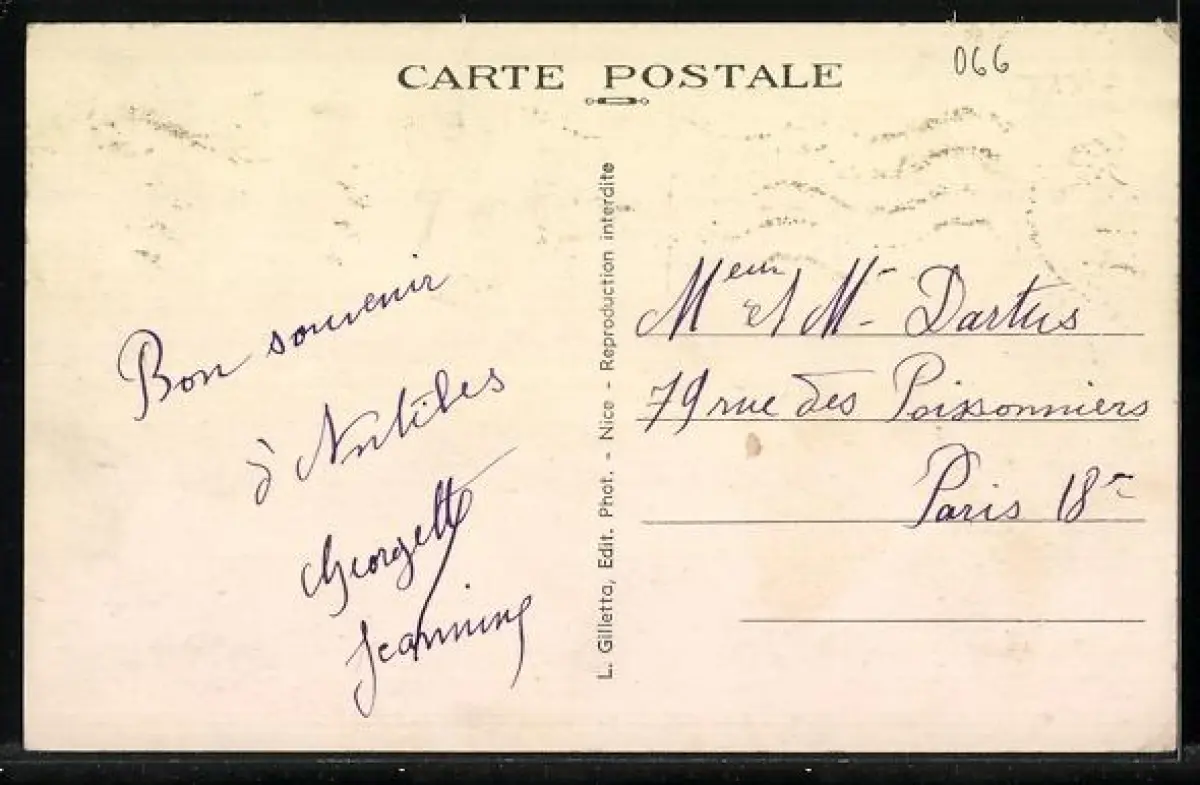 CARTE POSTALE
066
Bon souvenir
à Antibes
Georgette
Jeannine
L. Gilletta, Edit. Phot. - Nice - Reproduction interdite
et M Dartus
79 rue des Poissonniers
Paris 18